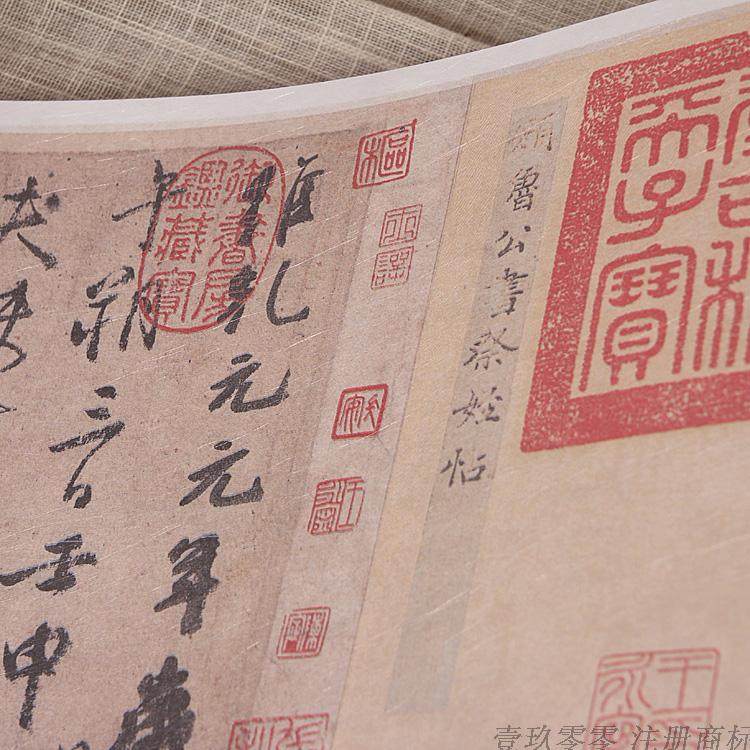 古稀
天子寶
顏魯公書祭姪帖
樞
維乾元元年歲
午朔三日壬申
夫使
御書房
鑒藏寶
壹玖零零 注册商标